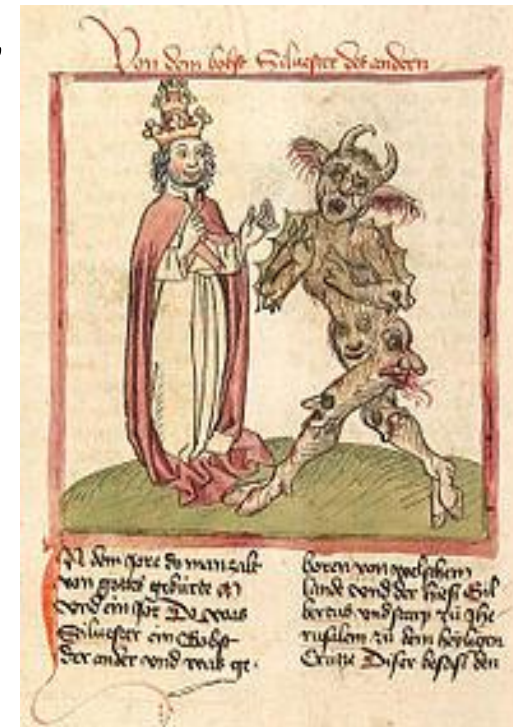 Von dem bobst Siluester der andern
In dem Jore do man zalt
von gottes gebürte M
vnd ein jor Do was
Siluester ein Bobst
Der ander vnd was ge-
boren von welschem
lande vnd der hiesz Gil
bertus vnd starp zü Jhe
rusalem zü dem heyligen
Crütze Diser besasz den